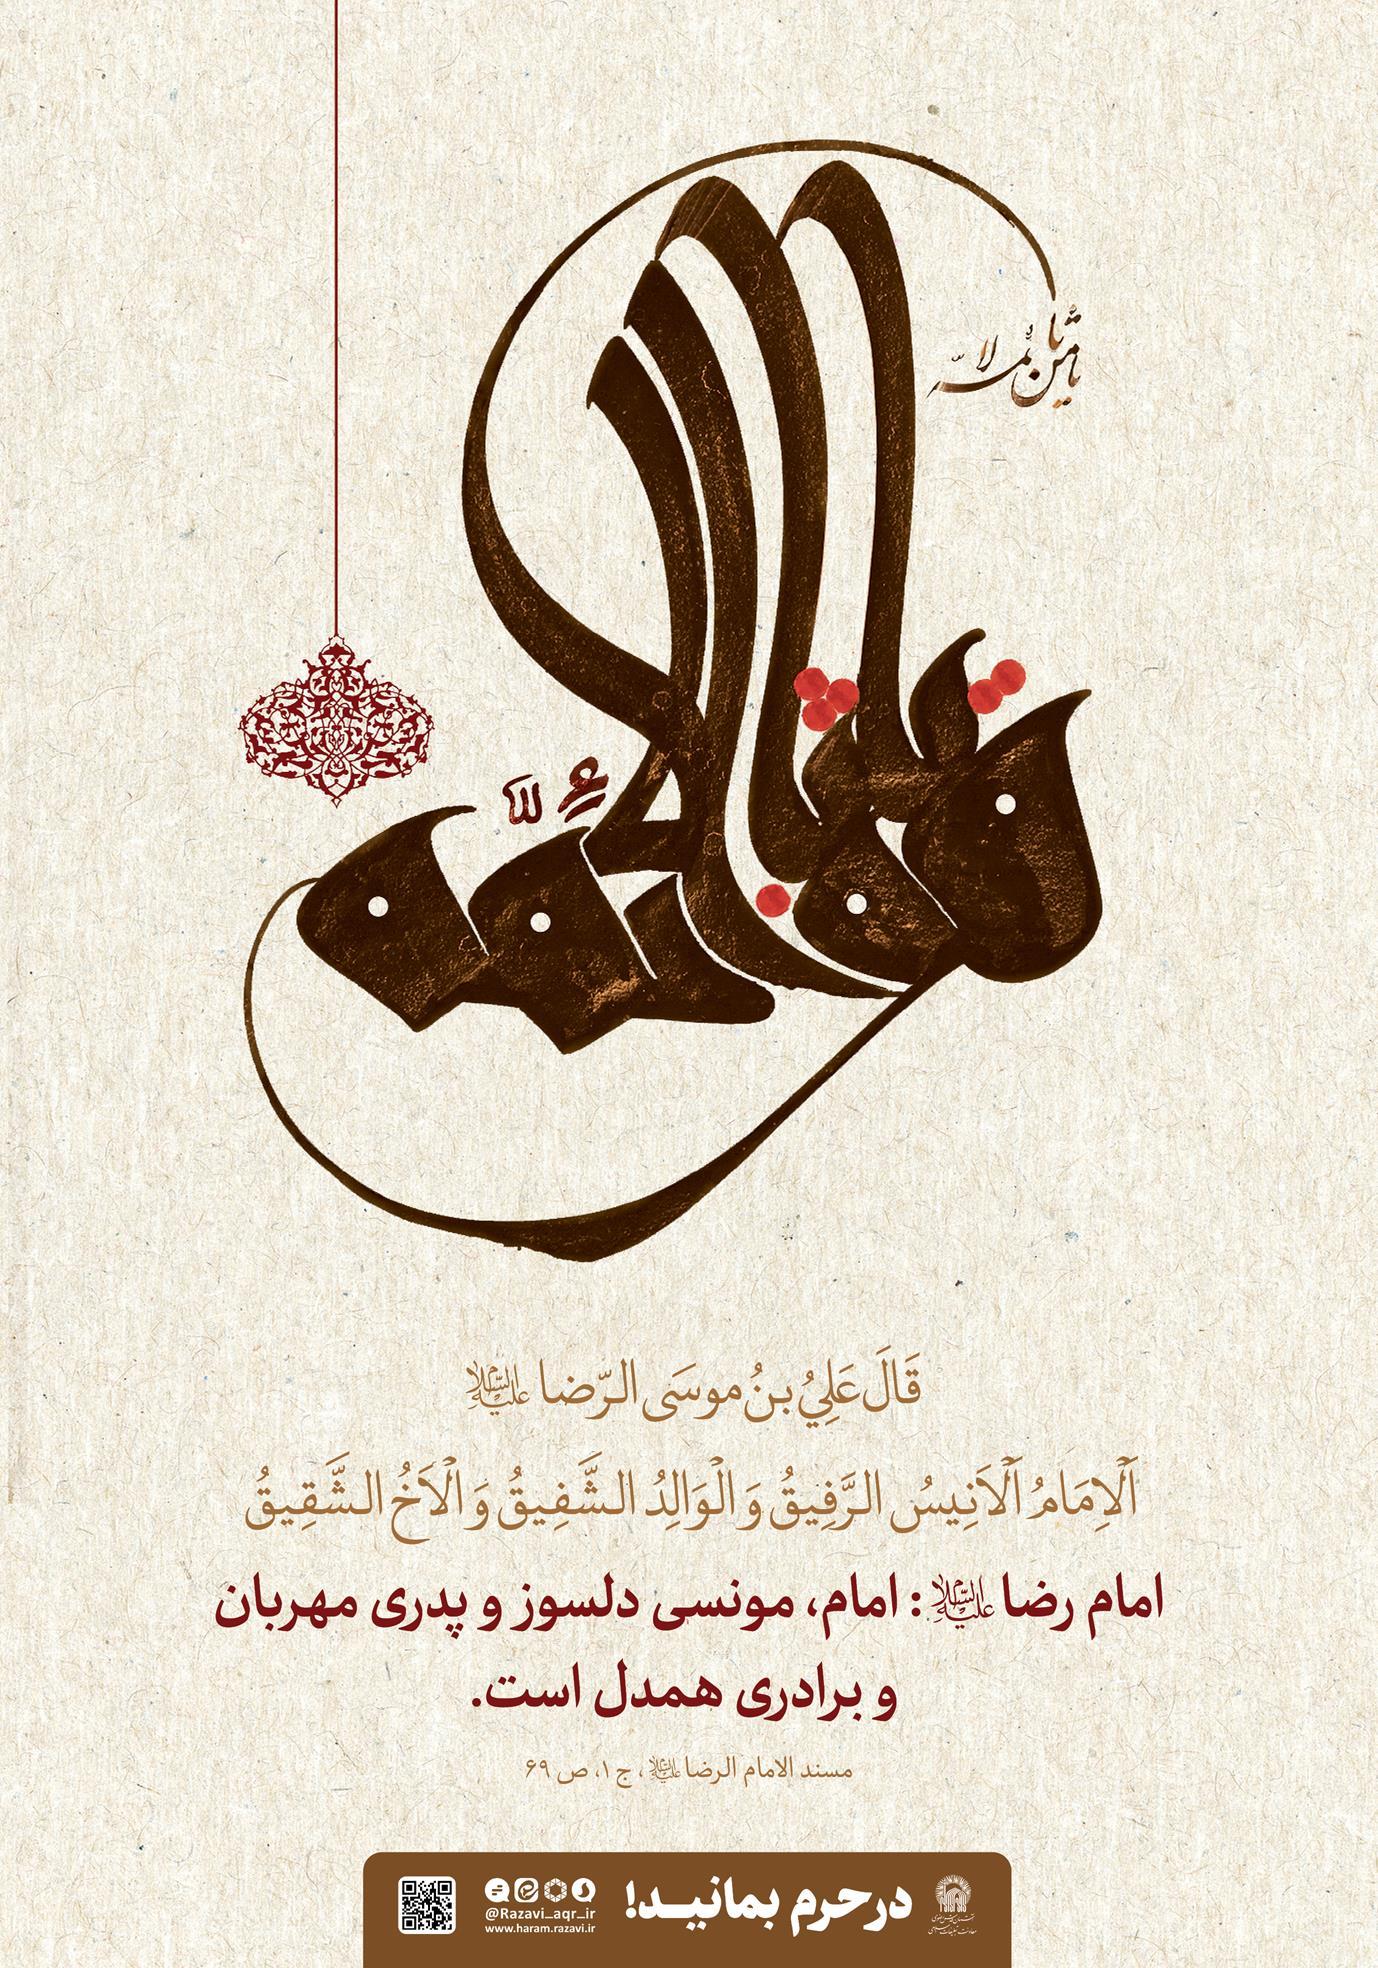 ثامن الائمه
قَالَ عَلِيُ بنُ موسَى الرّضا علیه السلام
اَلْاِمَامُ اَلْاَنِيسُ الرَّفِيقُ وَ الْوَالِدُ الشَّفِيقُ وَ الْاَخُ الشَّقِيقُ
امام رضا علیه السلام: امام، مونسی دلسوز و پدری مهربان
و برادری همدل است.
مسند الامام الرضا علیه السلام، ج ۱، ص ۶۹
در حرم بمانید!
@Razavi_aqr_ir
www.haram.razavi.ir